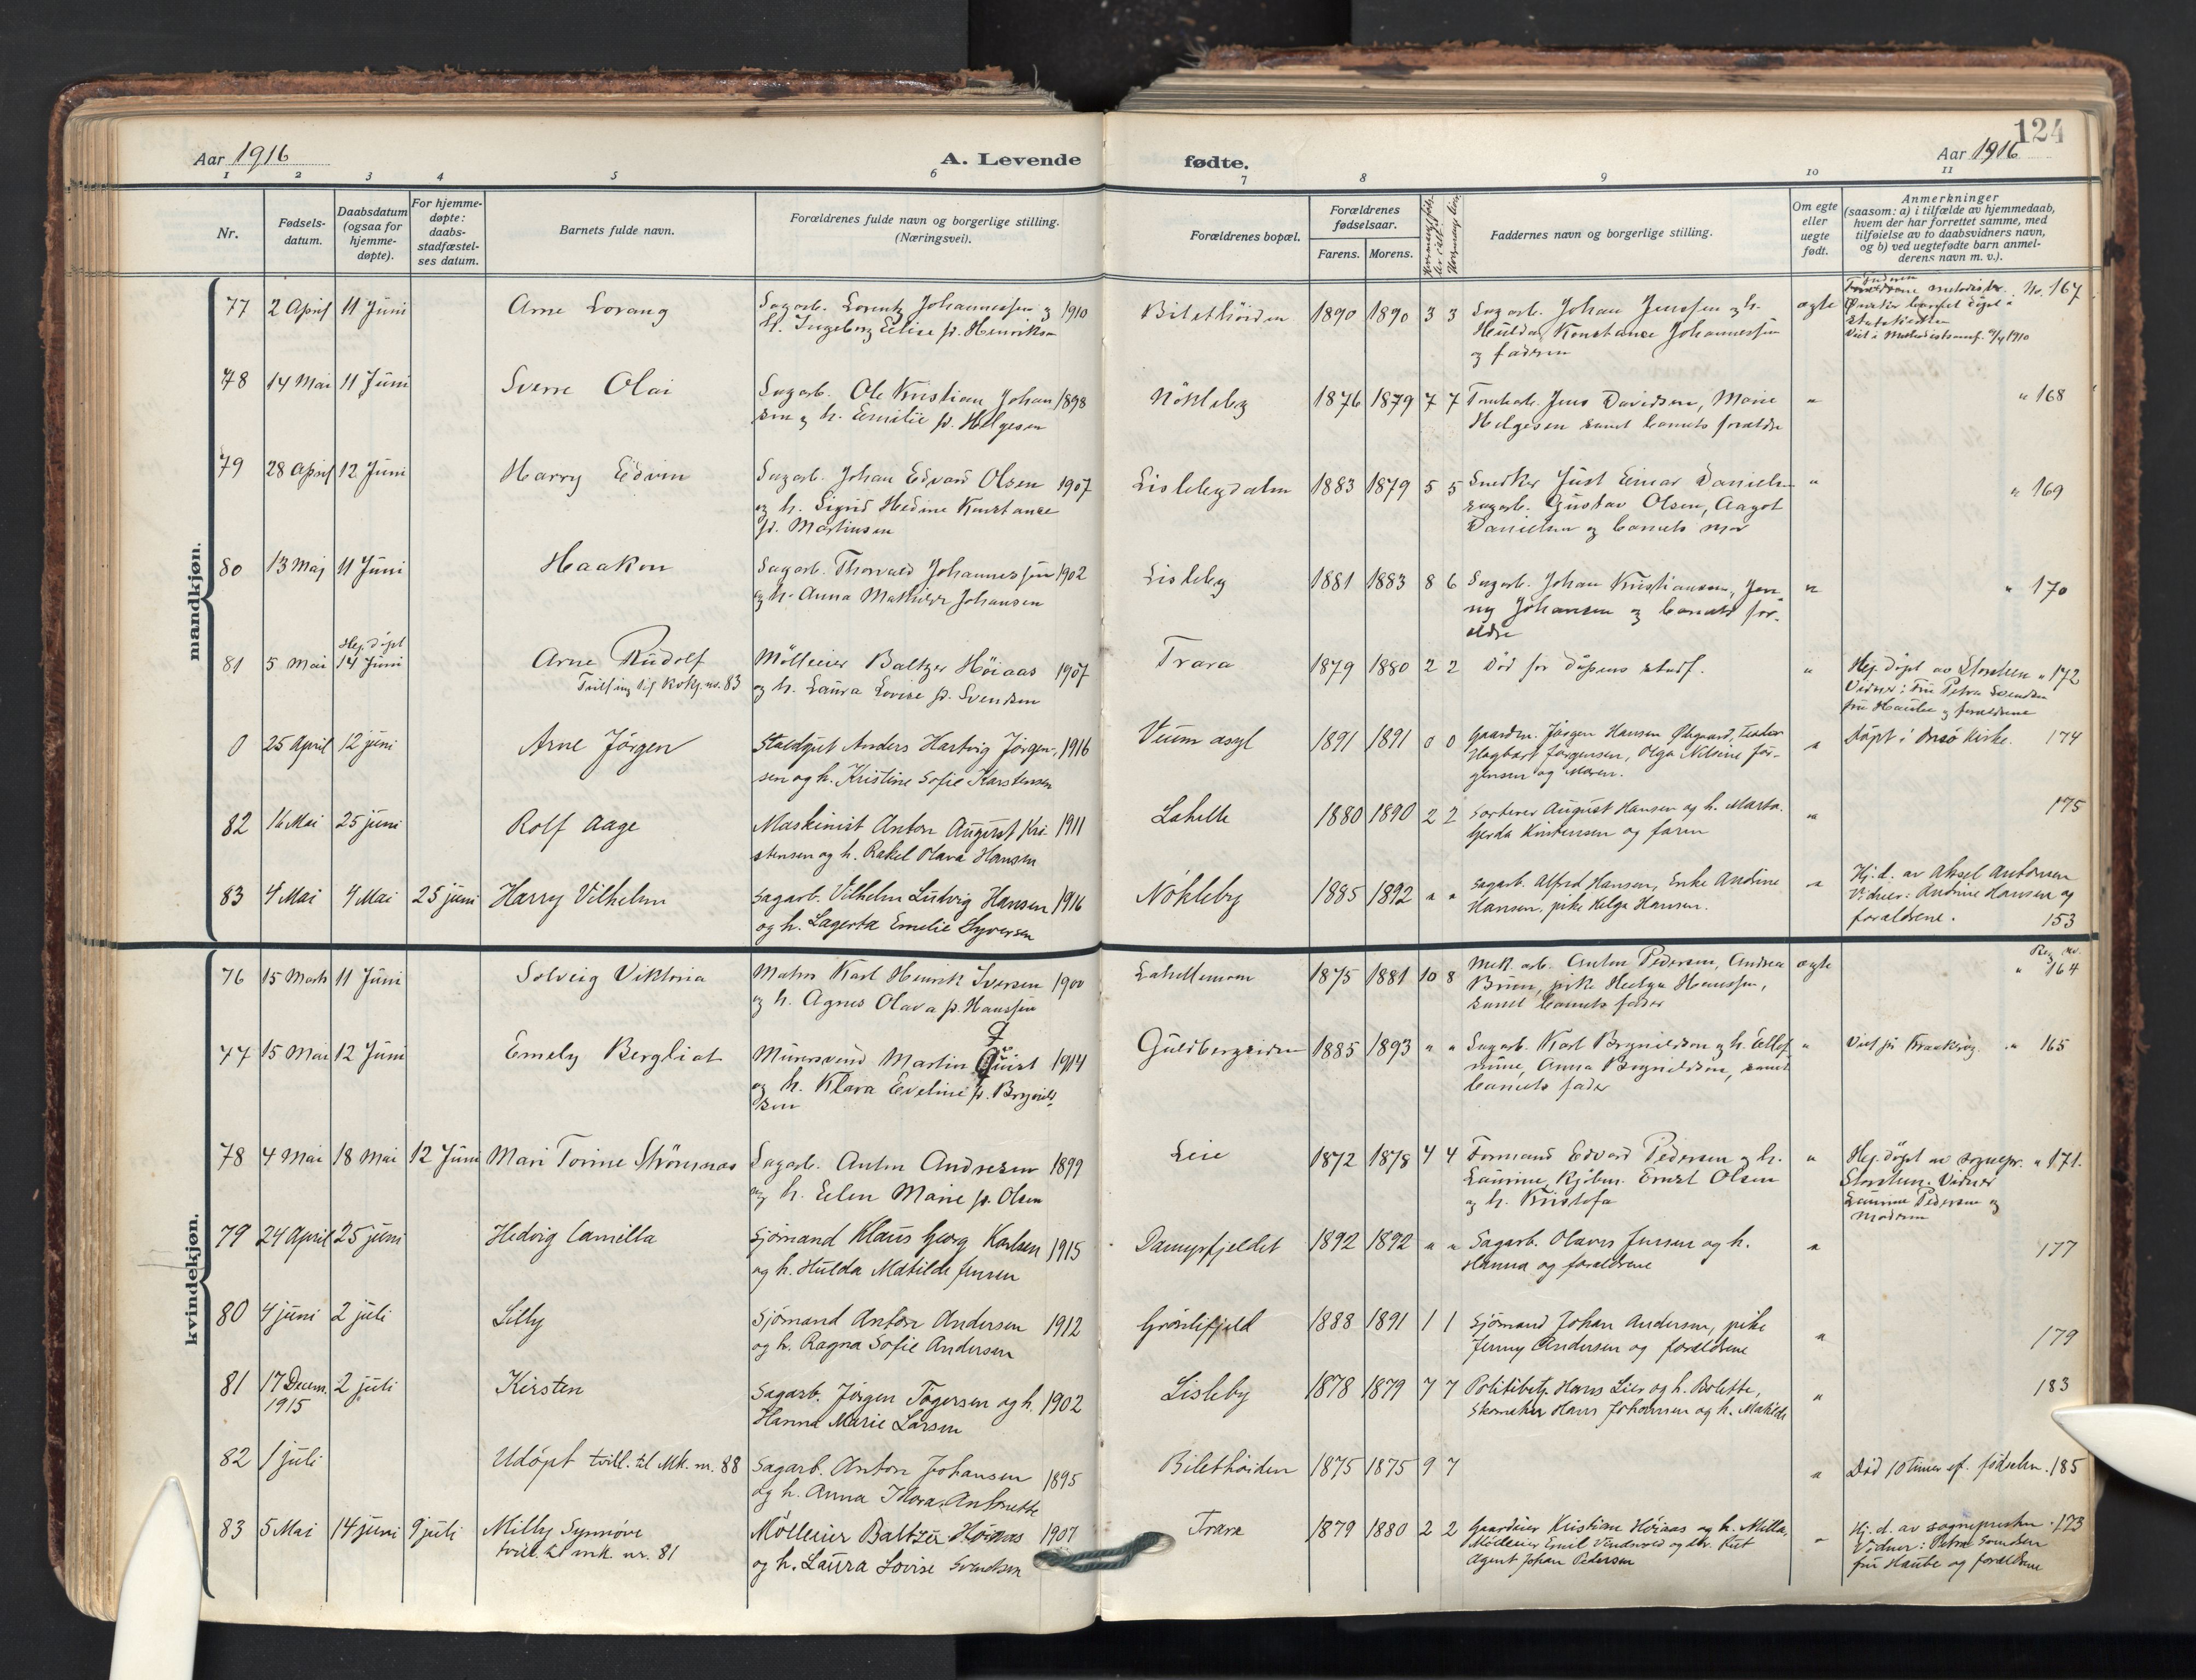 124
Aar 1916
A. Levende
fødte.
Aar 1916
1 2 3 4 5 6 7 8 9 10 11
Nr.
Fødsels-
datum.
Daabsdatum
(ogsaa for
hjemme-
døpte).
For hjemme-
døpte:
daabs-
stadfæstel-
ses datum.
Barnets fulde navn.
Forældrenes fulde navn og borgerlige stilling.
(Næringsvei).
Forældrenes bopæl.
Forældrenes
fødselsaar.
Farens. Morens.
Faddernes navn og borgerlige stilling.
Om egte
eller
uegte
født.
Anmerkninger
(saasom: a) i tilfælde av hjemmedaab,
hvem der har forrettet samme, med
tilføielse av to daabsvidners navn,
og b) ved uegtefødte barn anmel-
derens navn m. v.).
mandkjøn.
77 2 April 11 Juni Arne Lorang
Sagarb. Lorentz Johannessen og 1910
H. Ingeborg Elise f. Henriksen
Bilethöiden 1890 1890 3 3
Sagarb. Johan Jenssen og h.
Hulda, Konstance Johannessen
og faderen
ægte
No. 167
barnet döpt i
Statskirken
Viet i Methodistsamf. 1910
78 14 Mai 11 Juni Sverre Olai
Sagarb. Ole Kristian Johan 1898
sen og h. Emilie f. Helgesen
Nökleby 1876 1879 7 7
Jens Davidsen, Marie
Helgesen samt barnets forældre
" " 168
79 28 April 12 Juni Harry Edvin
Sagarb. Johan Edvard Olsen 1907
og h. Sigrid Hedine Konstance
f. Martinsen
Lislebydalen 1883 1879 5 5
Snedker Just Einar Daniels-
sagarb. Gustav Olsen, Aagot
Danielsen og barnets mor
" " 169
80 13 Mai 11 Juni Haakon
Sagarb. Thorvald Johannessen 1902
og h. Anna Mathilde Johansen
Lisleby 1881 1883 8 6
Sagarb. Johan Kristiansen, Jen-
ny Johansen og barnets for-
ældre
" " 170
81 5 Mai Hej. döpt
14 Juni
Arne Rudolf
Tvilling til kvkj. nr. 83
Mölleier Baltzer Höiaas 1907
og h. Laura Lovise f. Svendsen
Trara 1879 1880 2 2
Död for daapens stadf.
"
Hej. döpt av Storsteen " 172
Vidner: Fru Petra Svendsen
fru Haube og forældrene
0 25 April 12 juni Arne Jörgen
Staldgut Anders Hartvig Jörgen- 1916
sen og h. Kristine Sofie Karstensen
Veum asyl 1891 1891 0 0
Gaardm. Jörgen Hansen
Hagbart Jörgensen, Olga Nilsine Jör-
gensen og Moren.
"
Döpt i Onsö Kirke. 174
82 16 Mai 25 juni Rolf Aage
Maskinist Anton August Kri 1911
stensen og h. Rakel Olava Hansen
Lahelle 1880 1890 2 2
Sorterer August Hansen og h. Marta.
Gerda Kristensen og faren
" 175
83 4 Mai 4 Mai 25 juni Harry Vilhelm
Sagarb. Vilhelm Ludvig Hansen 1916
og h. Lagerta Emelie Syversen
Nökleby 1885 1892 " "
Sagarb. Alfred Hansen, Enke Andrine
Hansen, pike Helga Hansen.
"
Hj. d. av Aksel Antonsen
Vidner: Andrine Hansen og
forældrene. 153
kvindekjøn.
76 15 Marts 11 Juni Solveig Viktoria
Matros Karl Henrik Iversen 1900
og h. Agnes Olava f. Hanssen
Lahellemoen 1875 1881 10 8
Mek. arb. Anton Pedersen, Andrea
pike Helga Hanssen,
samt barnets fader
ægte
Reg. nr.
" 164
77 15 Mai 12 Juni Emely Bergliot
Murersvend Martin Quist 1914
og h. Klara Eveline f. Brynild-
sen
Guldbergsiden 1885 1893 " "
Sagarb. Karl Brynildsen og h. Ellef-
mine, Anna Brynildsen, samt
barnets fader
"
Viet i Kraakerøy. " 165
78 4 Mai 18 Mai 12 Juni Mari Torine Strömnæs
Sagarb. Anton Andresen 1899
og h. Elen Marie f. Olsen
Leie 1872 1878 4 4
Formand Edvard Pedersen og h.
Laurine, Kjöbm. Ernst Olsen
og h. Kristofa
"
Hej. döpt av sognepr. " 171.
Storsteen. Vidner
Laurine Pedersen og
moderen
79 24 April 25 juni Hedvig Camilla
Sjömand Klaus Georg Karlsen 1915
og h. Hulda Matilde Jensen
Dampsfjeldet 1892 1892 " "
Sagarb. Olavus Jensen og h.
Hanna og forældrene
" 177
80 4 juni 2 juli Lilly
Sjömand Anton Andersen 1912
og h. Ragna Sofie Andersen
Grönlifjeld 1888 1891 1 1
Sjömand Johan Andersen, pike
Jenny Andersen og forældrene
" 179
81 17 Decem. 2 juli Kirsten
1915
Sagarb. Jörgen Tögersen og h. 1902
Hanna Marie Larsen
Lisleby 1878 1879 7 7
Politibetj. Hans Lier og h. Bolette,
Skomaker Hans Johansen og h. Matilde
" 183
82 1 juli Udöpt tvill. til Mk. nr. 88
Sagarb. Anton Johansen 1895
og h. Anna Thora Antonette
Bilethöiden 1875 1875 9 7
"
Död 10 timer ef. födselen. 185
83 5 Mai 14 juni 9 juli Milly Synnöve
tvill. til mk. nr. 81
Mölleier Baltzer Höiaas 1907
og h. Laura Lovise Svendsen
Trara 1879 1880 2 2
Gaardeier Kristian Höiaas og h. Milla,
Mölleier Emil
Agent Johan Pedersen
"
Hj. d. av sognepresten 173
Vidner: Petra Svendsen
fru Haube og forældrene